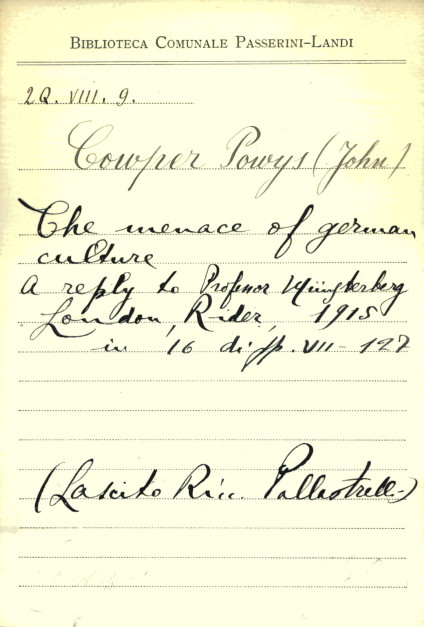 BIBLIOTECA COMUNALE PASSERINI-LANDI
2Q. VIII. 9.
Cowper Powys (John)
The menace of german
culture
A reply to Professor Münsterberg
London, Rider, 1915
in 16 di pp. VII - 127
(Lascito Ric. Pallastrelli)